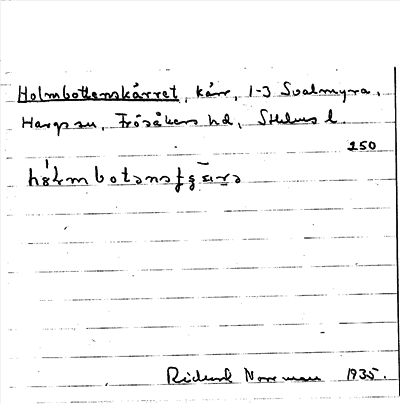 Holmbottenskärret, kärr, 1-3 Svalmyra,
Hargs sn, Frösåkers hd, Sthlms l.
250
Richard Norrman 1935.